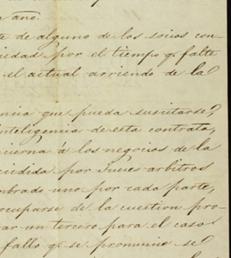 a año.
te de alguno de los socios con
ciedad por el tiempo q.e falte
el actual arriendo de la
encia que pueda suscitarse,
inteligencia de esta contrata,
cierna á los negocios de la
ecidida por Jueces arbitros
mbrado uno por cada parte,
ocuparse de la cuestion pro
rar un tercero para el caso
fallo q.e se pronuncie se